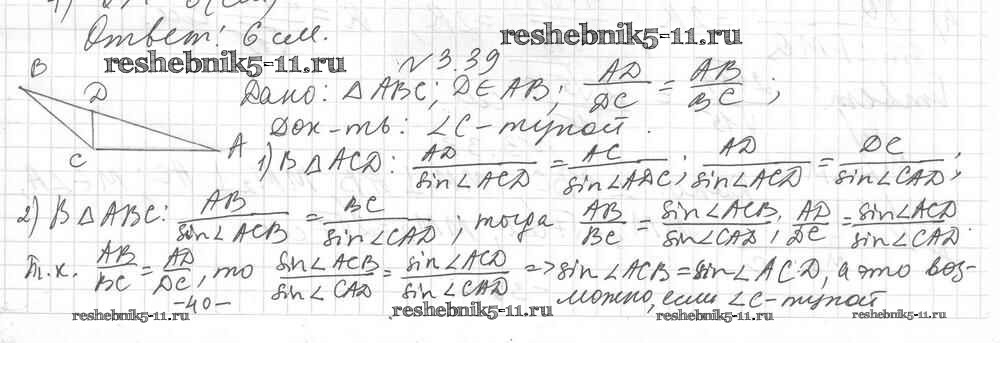 Ответ: 6 см.
reshebnik5-11.ru
reshebnik5-11.ru
№3.39
B
D
C
A
Дано: △ABC; D∈AB; AD/DC = AB/BC;
Док-ть: ∠C - тупой.
1) В △ACD: AD/sin∠ACD = AC/sin∠ADC; AD/sin∠ACD = DC/sin∠CAD;
2) В △ABC: AB/sin∠ACB = BC/sin∠CAD; тогда AB/BC = sin∠ACB/sin∠CAD; AD/DC = sin∠ACD/sin∠CAD.
Т.к. AB/BC = AD/DC, то sin∠ACB/sin∠CAD = sin∠ACD/sin∠CAD => sin∠ACB = sin∠ACD, а это воз-
можно, если ∠C - тупой
-40-
reshebnik5-11.ru
reshebnik5-11.ru
reshebnik5-11.ru
reshebnik5-11.ru